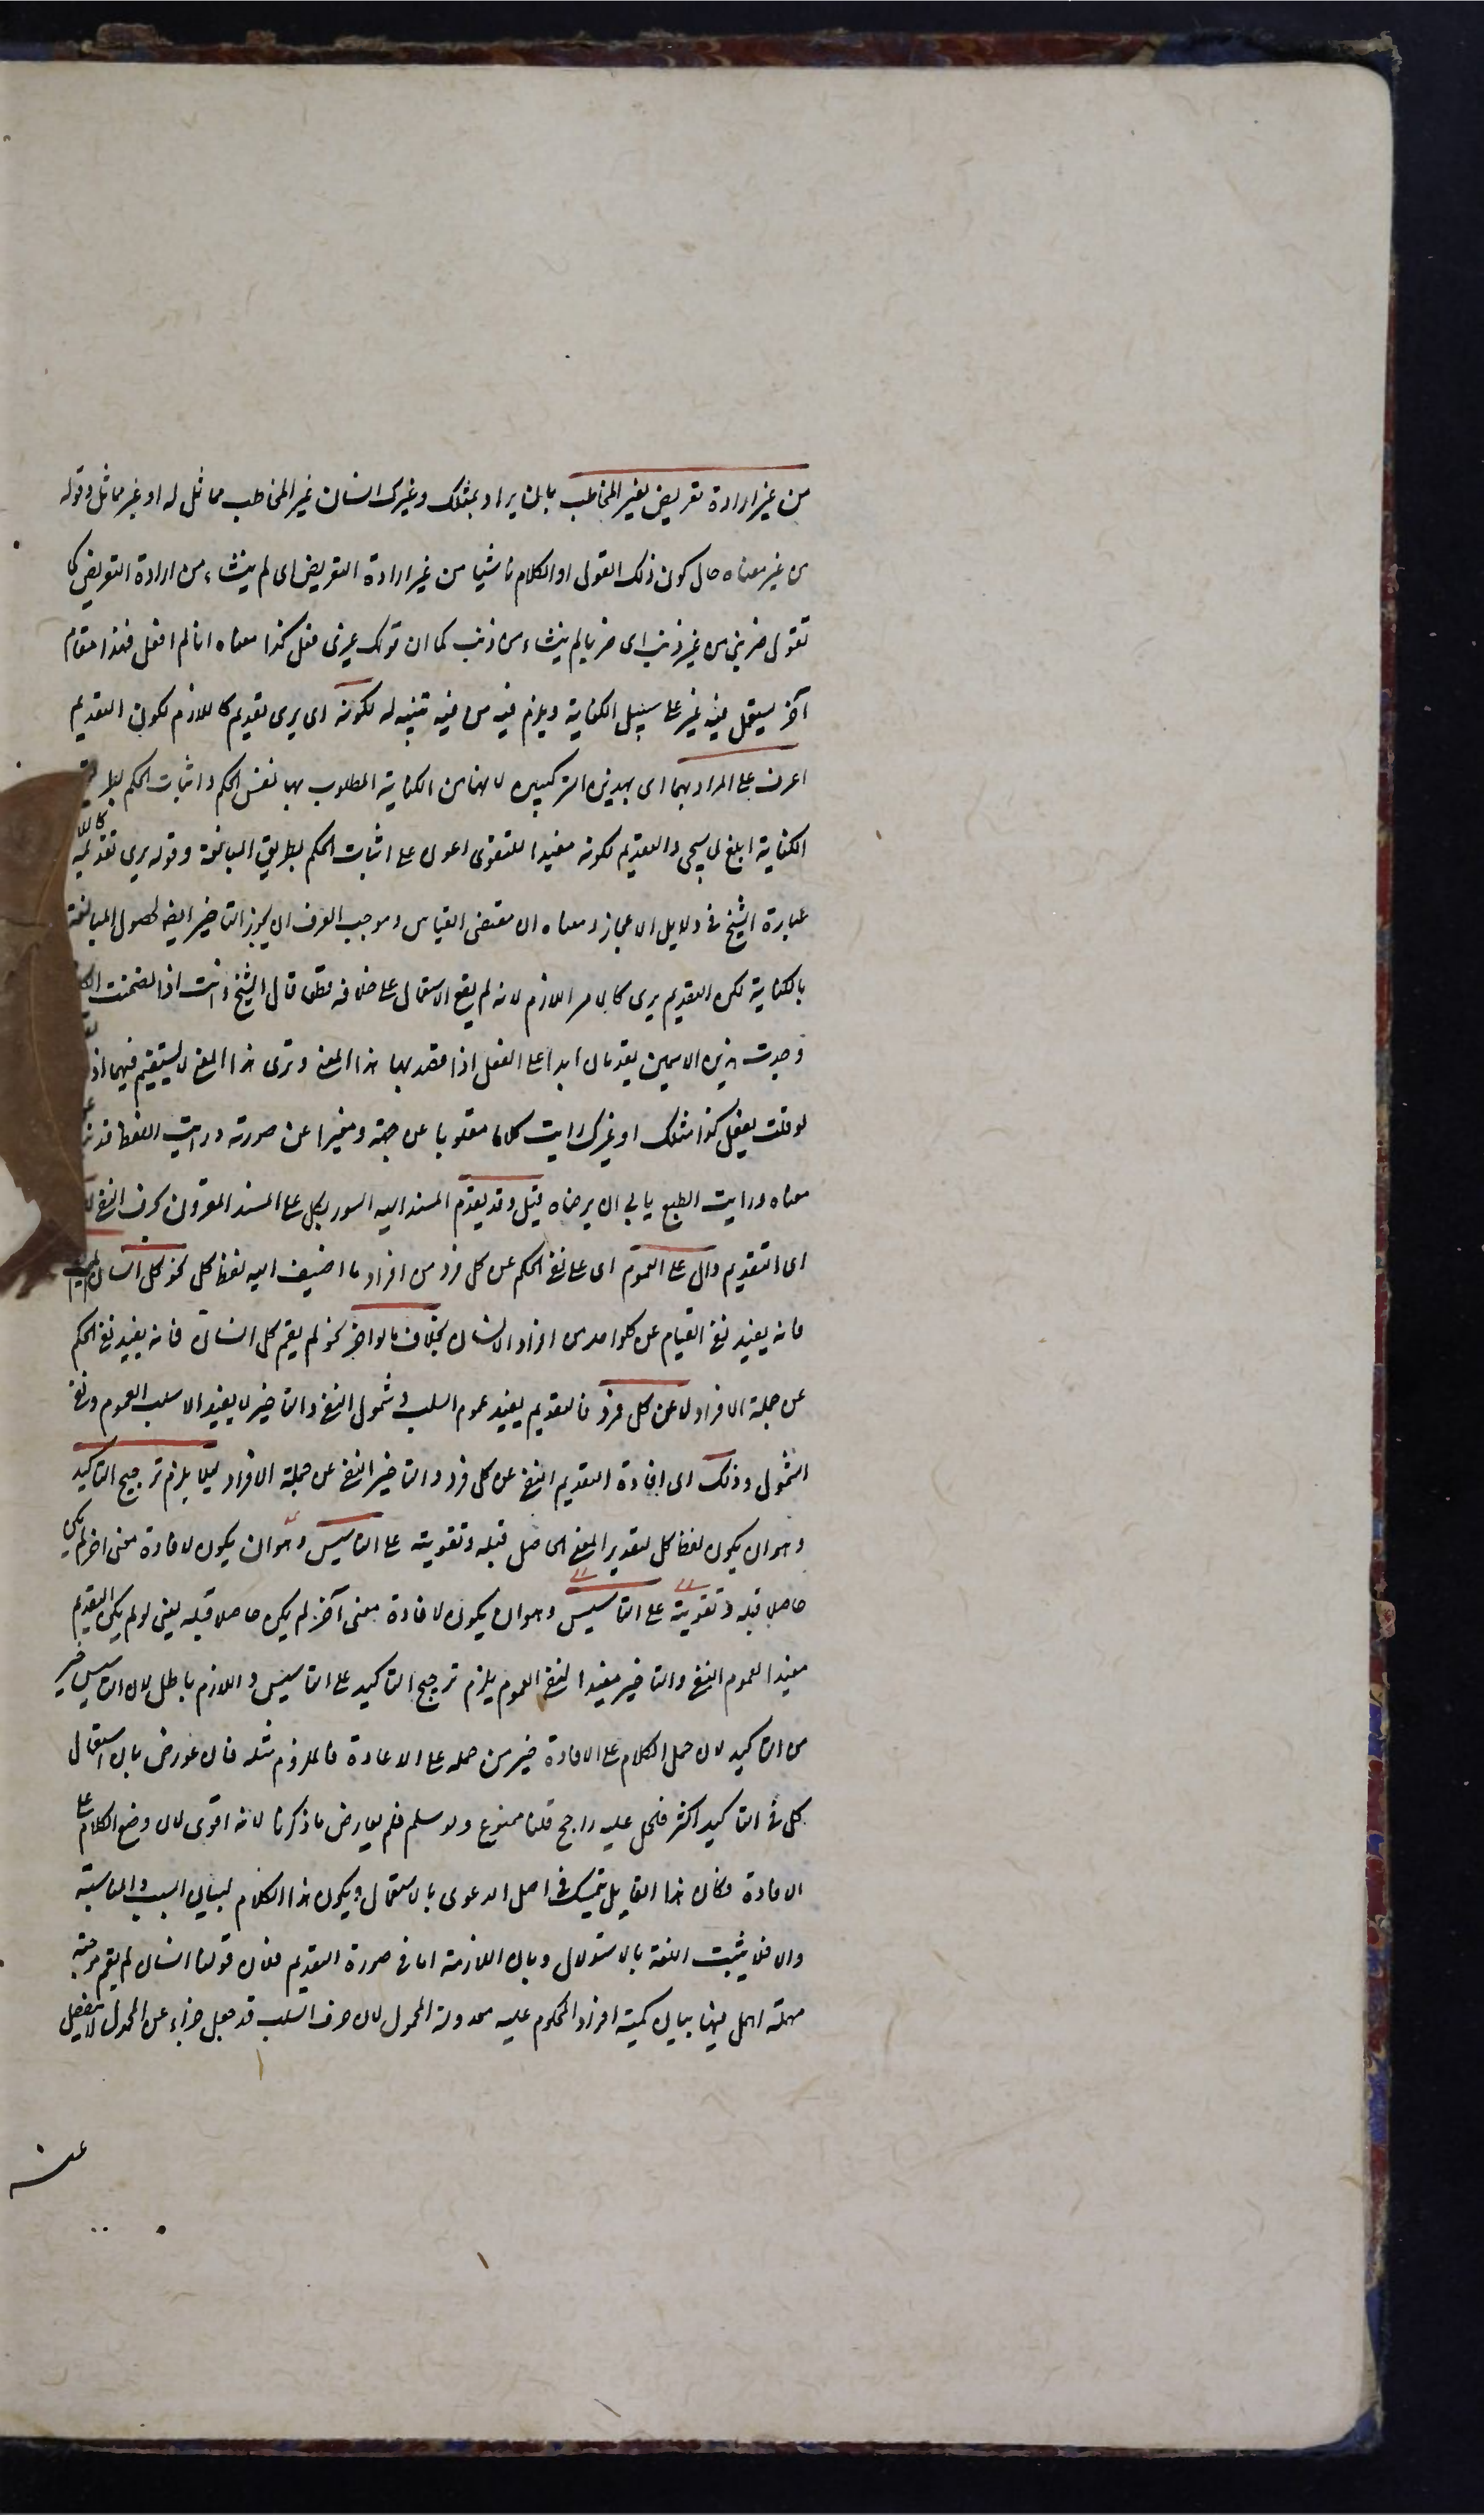 من غير ارادة تعريض لغير المخاطب بان يراد بمثلك وغيرك انسان غير المخاطب مماثل له او غير مماثل وقوله
من غير معناه حال كون ذلك القول او الكلام ناشيا من غير ارادة التعريض اى لم ينشاء من ارادة التعريض كما
تقول ضربنى من غير ذنب اى ضربا لم ينشاء من ذنب كما ان قولك غيرى فعل كذا معناه انا لم افعل فهذا مقام
آخر يستعمل فيه غير على سبيل الكناية ويلزم فيه من فيه تنبيه له لكونه اى يرى تقديم كاللازم لكون التقديم
اعون على المراد بهما اى بهذين التركيبين لانهما من الكناية المطلوب بهما نفس الحكم واثبات الحكم بطريق
الكناية ابلغ لما سيجى والتقديم لكونه مفيدا للتقوى اعون على اثبات الحكم بطريق المبالغة وقوله يرى تقديمه كاللا
عبارة الشيخ فى دلايل الاعجاز ومعناه ان مقتضى القياس وموجب العرف ان يجوز التاخير ايضا لحصول المبالغة
بالكناية لكن التقديم يرى كالامر اللازم لانه لم يقع الاستعمال على خلافه قطعا قال الشيخ وانت اذا تصفحت الكلا
وجدت هذين الاسمين يقدمان ابدا على الفعل اذا قصد بهما هذا المعنى وترى هذا المعنى لا يستقيم فيهما اذا
لو قلت يفعل كذا مثلك او غيرك رايت كلاما مقلوبا عن جهته ومغيرا عن صورته ورايت اللفظ قد نبا عن
معناه ورايت الطبع يابى ان يرضاه قيل وقد يقدم المسند اليه المسور بكل على المسند المقرون بحرف النفى لانه
اى التقديم دال على العموم اى على نفى الحكم عن كل فرد من افراد ما اضيف اليه لفظ كل نحو كل انسان لم يقم
فانه يفيد نفى القيام عن كلواحد من افراد الانسان بخلاف ما لو اخر نحو لم يقم كل انسان فانه يفيد نفى الحكم
عن جملة الافراد لا عن كل فرد فالتقديم يفيد عموم السلب وشمول النفى والتاخير لا يفيد الا سلب العموم ونفى
الشمول وذلك اى افادة التقديم النفى عن كل فرد والتاخير النفى عن جملة الافراد ليلا يلزم ترجيح التاكيد
وهو ان يكون لفظ كل لتقدير المعنى الحاصل قبله وتقويته على التاسيس وهو ان يكون لافادة معنى اخر لم يكن
حاصلا قبله وتقويته على التاسيس وهو ان يكون لافادة معنى آخر لم يكن حاصلا قبله يعنى لو لم يكن التقديم
مفيدا لعموم النفى والتاخير مفيدا لنفى العموم يلزم ترجيح التاكيد على التاسيس واللازم باطل لان التاسيس خير
من التاكيد لان حمل الكلام على الافادة خير من حمله على الاعادة فالملزوم مثله فان عورض بان استعمال
كل فى التاكيد اكثر فحمل عليه راجح قلنا ممنوع ولو سلم فلم يعارض ما ذكرنا لانه اقوى لان وضع الكلام على
الافادة وكان هذا القايل يتمسك فى اصل الدعوى بالاستعمال ويكون هذا الكلام لبيان السبب والمناسبة
والا فلا يثبت اللغة بالاستدلال وبيان الملازمة اما فى صورة التقديم فلان قولنا انسان لم يقم موجبة
مهملة اهمل فيها بيان كمية افراد المحكوم عليه معدولة المحمول لان حرف السلب قد جعل جزاء من المحمول لا ينفصل
عنه